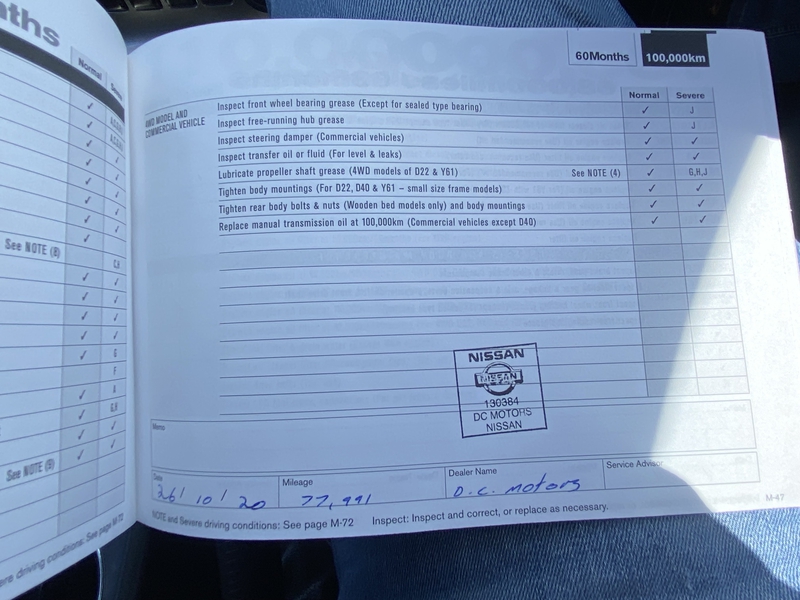 nths
Normal
Severe
See NOTE (8)
C,H
G
F
A
G,H
See NOTE (9)
ere driving conditions: See page M-72
60Months 100,000km
Normal Severe
4WD MODEL AND
COMMERCIAL VEHICLE
Inspect front wheel bearing grease (Except for sealed type bearing) ✓ J
Inspect free-running hub grease ✓ J
Inspect steering damper (Commercial vehicles) ✓ ✓
Inspect transfer oil or fluid (For level & leaks) ✓ ✓
Lubricate propeller shaft grease (4WD models of D22 & Y61) See NOTE (4) ✓ G,H,J
Tighten body mountings (For D22, D40 & Y61 – small size frame models) ✓ ✓
Tighten rear body bolts & nuts (Wooden bed models only) and body mountings ✓ ✓
Replace manual transmission oil at 100,000km (Commercial vehicles except D40) ✓ ✓
NISSAN
NISSAN
130384
DC MOTORS
NISSAN
Memo
Date
26/10/20
Mileage
77,991
Dealer Name
D.C. motors
Service Advisor
NOTE and Severe driving conditions: See page M-72 Inspect: Inspect and correct, or replace as necessary.
M-47